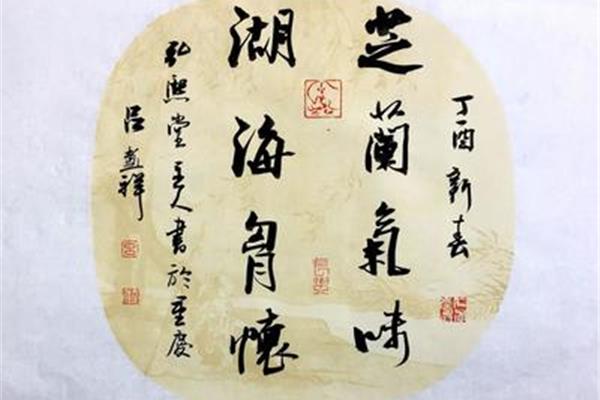 丁酉新春
芝蘭氣味
湖海胷懷
弘熙堂主人書於重慶
吕祥